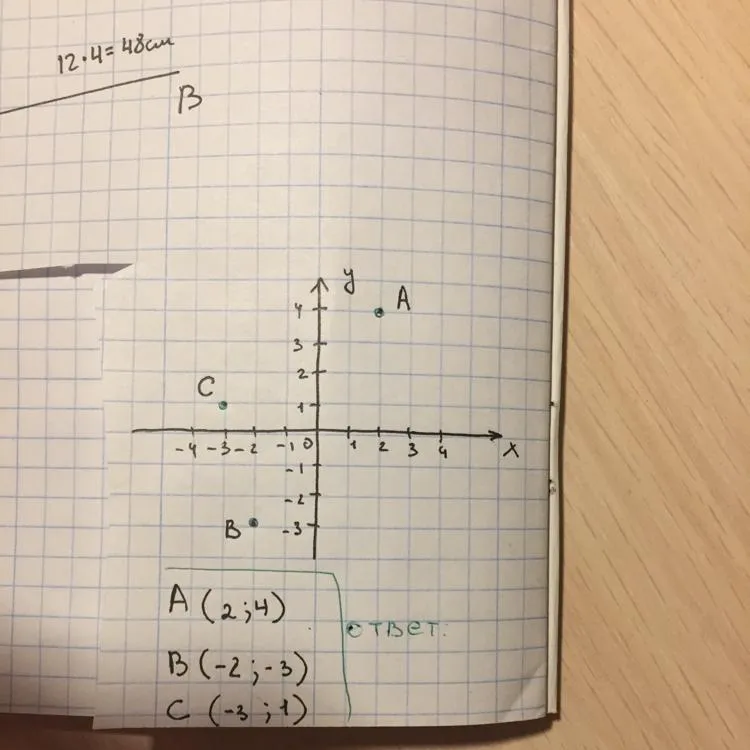 12·4=48см
B
y
A
4
3
2
C
1
-4 -3 -2 -1 0 1 2 3 4 x
-1
-2
B -3
A (2;4)
ответ:
B (-2;-3)
C (-3;1)